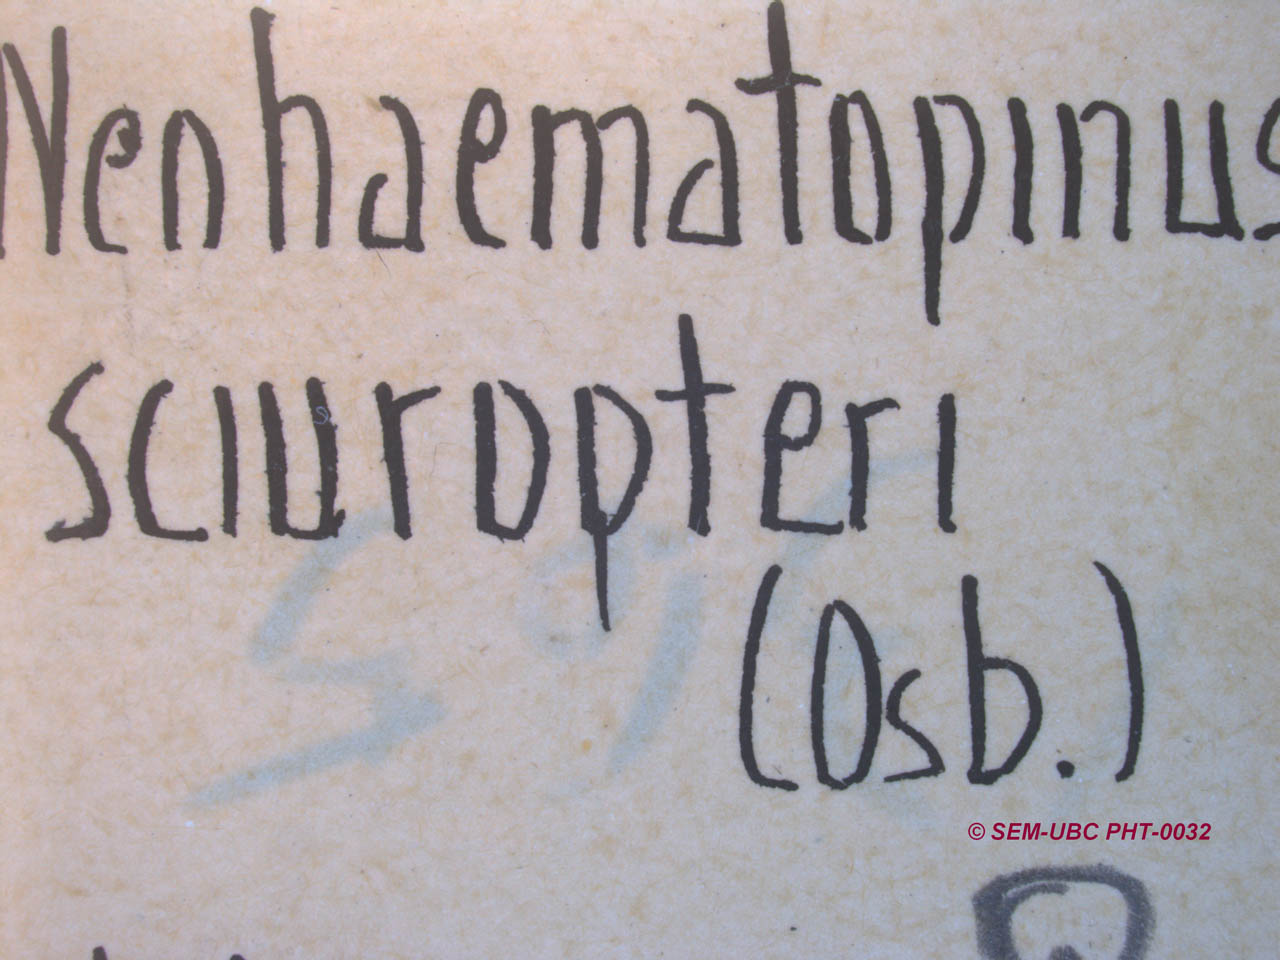 Neohaematopinus
sciuropteri
(Osb.)
© SEM-UBC PHT-0032